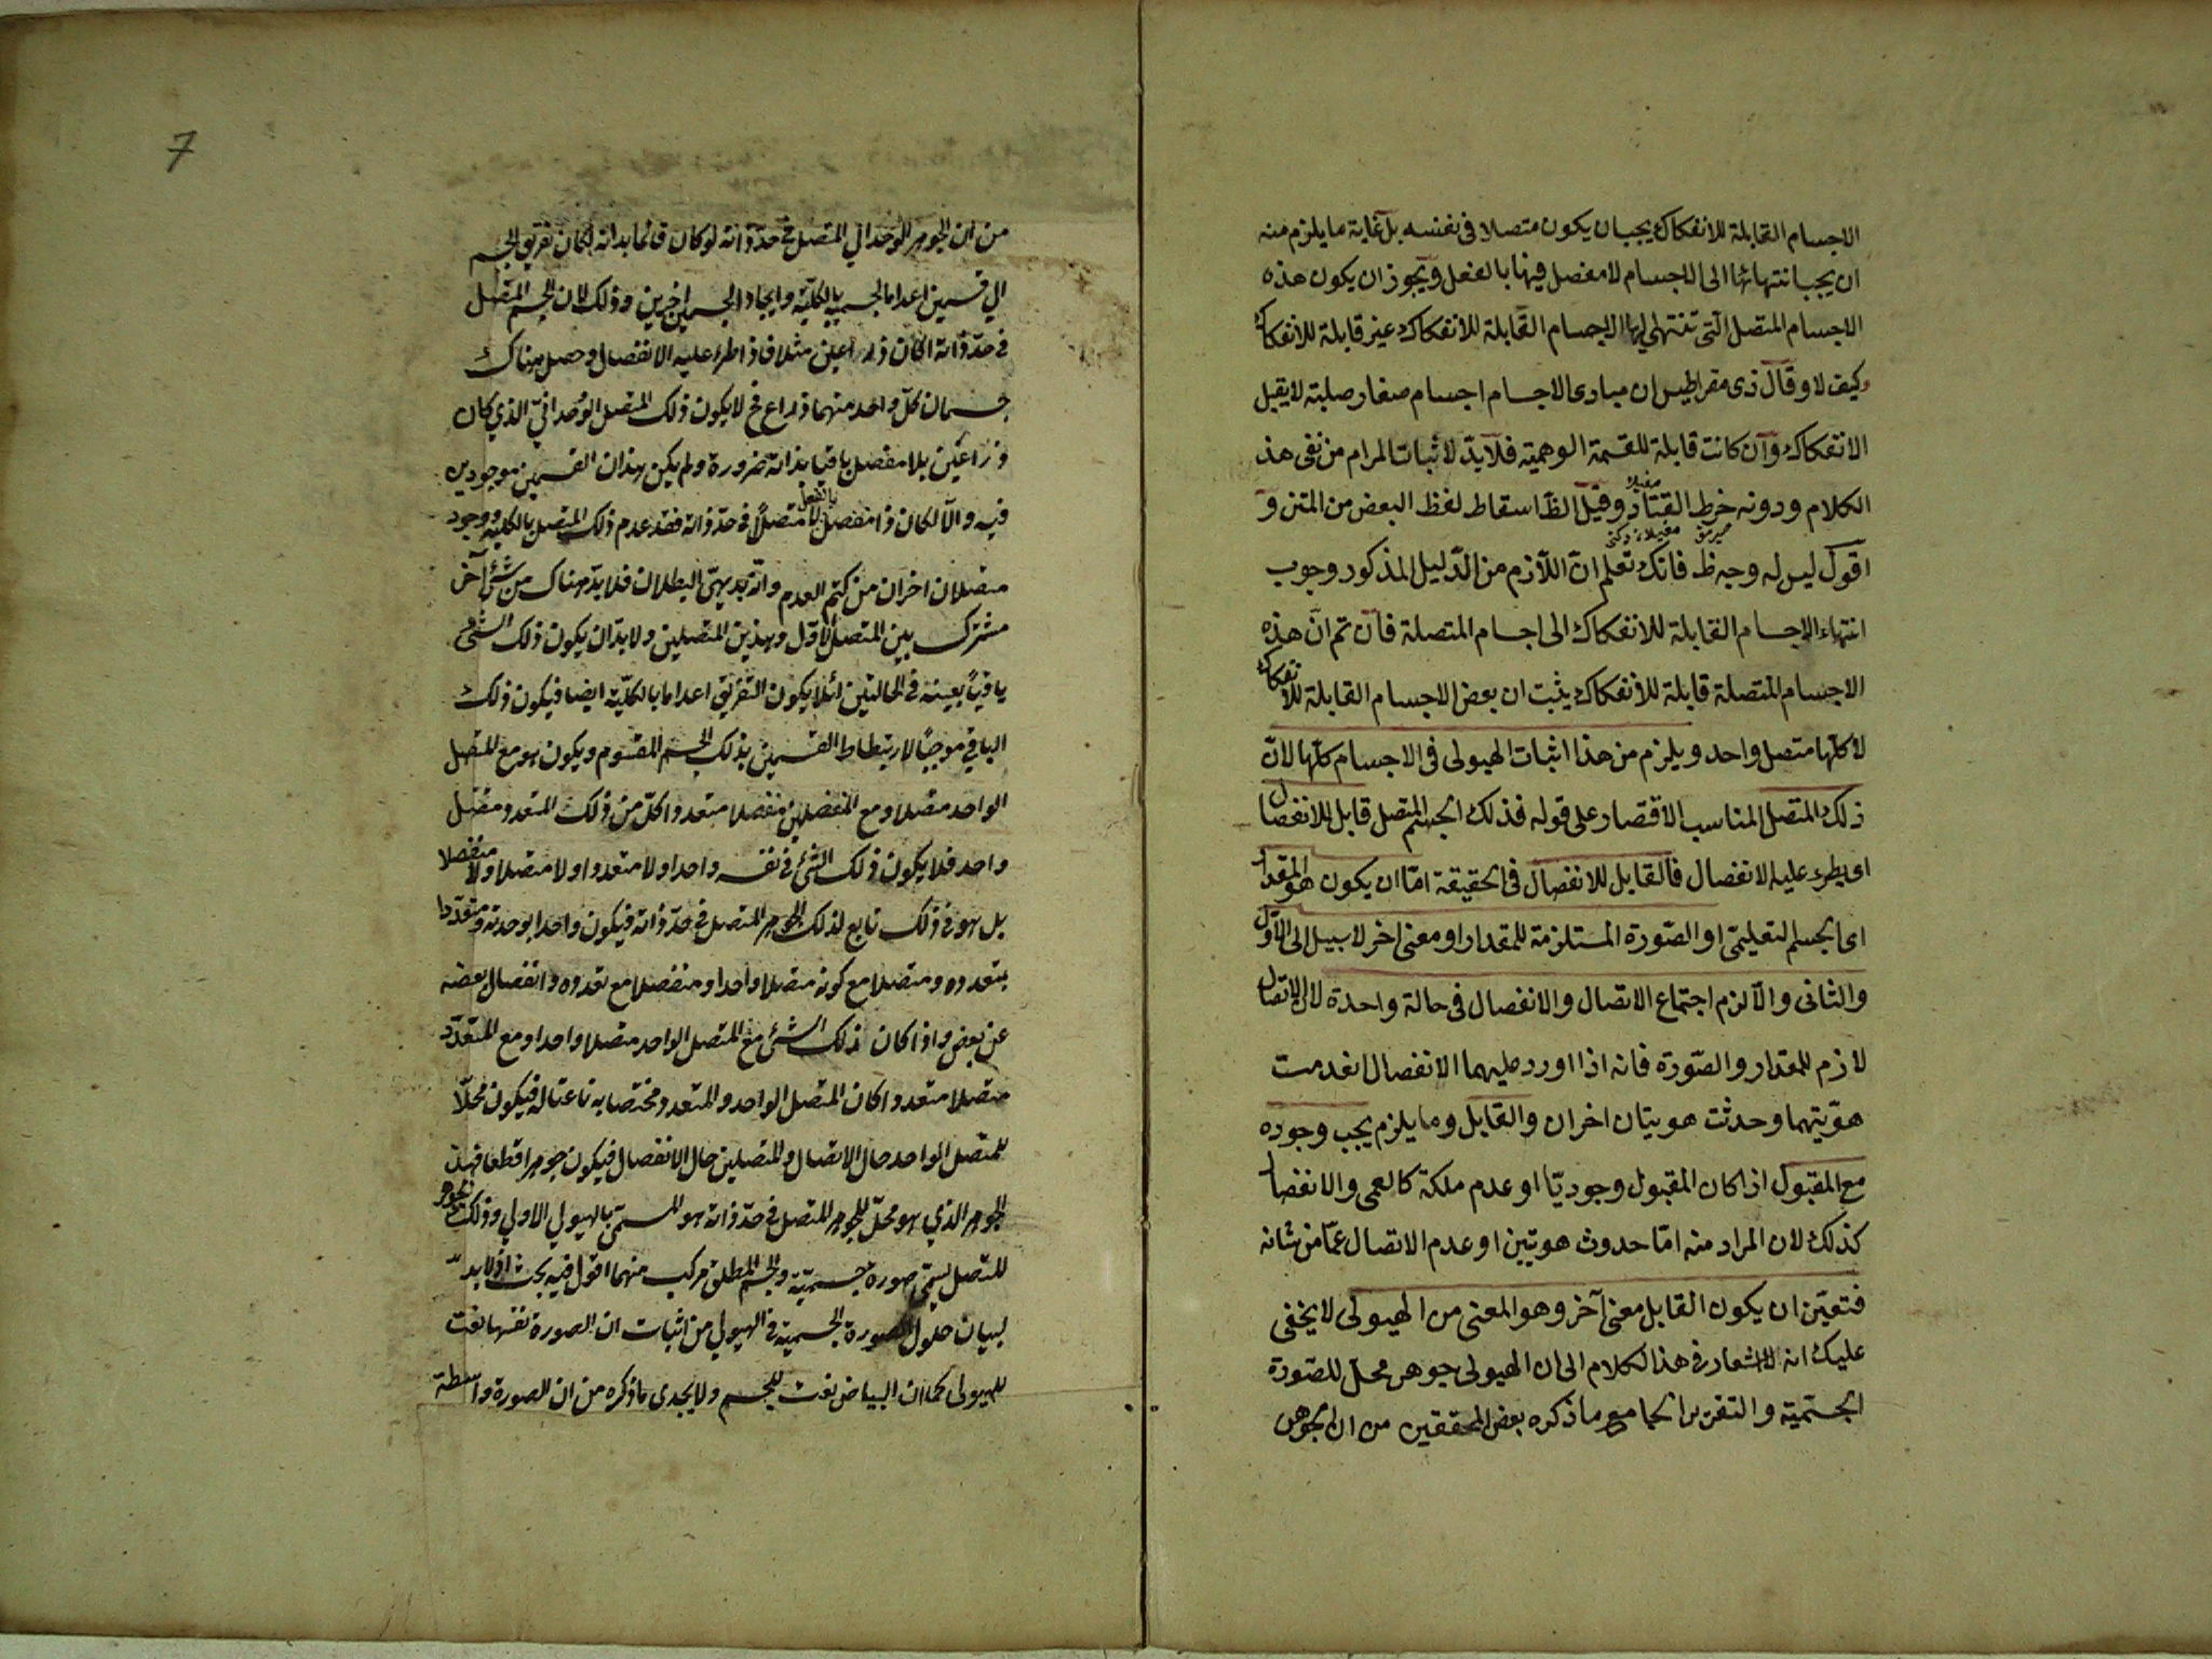 الاجسام القابلة للانفكاك يجب ان يكون متصلا فى نفسه بل غاية ما يلزم منه
ان يجب انتهائها الى الاجسام لا مفصل فيها بالفعل ويجوز ان يكون هذه
الاجسام المتصل التى تنتهى اليها الاجسام القابلة للانفكاك غير قابلة للانفكاك
وكيف لا وقال ذى مقراطيس ان مبادى الاجسام اجسام صغار صلبة لا يقبل
الانفكاك وان كانت قابلة للقسمة الوهمية فلا بد لاثبات المرام من نفى هذ
الكلام ودونه خرط القتاد وقيل الظ اسقاط لفظ البعض من المتن و
اقول ليس له وجه ظ فانك تعلم ان اللازم من الدليل المذكور وجوب
انتهاء الاجسام القابلة للانفكاك الى اجسام المتصلة فان تم ان هذه
الاجسام المتصلة قابلة للانفكاك يثبت ان بعض الاجسام القابلة للانفكاك
لا كلها متصل واحد ويلزم من هذا اثبات الهيولى فى الاجسام كلها لان
ذلك المتصل المناسب الاقتصار على قوله فذلك الجسم المتصل قابل للانفصال
اى يطرء عليه الانفصال فالقابل للانفصال فى الحقيقة اما ان يكون هو المقدار
اى الجسم التعليمى او الصورة المستلزمة للمقدار او معنى اخر لا سبيل الى الاول
والثانى والا لزم اجتماع الاتصال والانفصال فى حالة واحدة لان الاتصال
لازم للمقدار والصورة فانه اذا اورد عليهما الانفصال انعدمت
هويتهما وحدثت هويتان اخران والقابل وما يلزم يجب وجوده
مع المقبول اذا كان المقبول وجوديا او عدم ملكة كالعمى والانفصال
كذلك لان المراد منه اما حدوث هويتين او عدم الاتصال عما من شانه
فتعين ان يكون القابل معنى آخر وهو المعنى من الهيولى لا يخفى
عليك انه لا اشعار فى هذا الكلام الى ان الهيولى جوهر محل للصورة
الجسمية والتقرير الجامع ما ذكره بعض المحققين من ان الجوهر
من ان الجوهر الوحدانى المتصل فى حد ذاته لو كان قائما بذاته لكان تفريق الجسم
الى قسمين اعداما لجسم بالكلية وايجادا لجسمين اخرين وذلك لان الجسم المتصل
فى حد ذاته اذا كان ذراعين مثلا فاذا طرء عليه الانفصال وحصل هناك
جسمان كل واحد منهما ذراع فح لا يكون ذلك المتصل الوحدانى الذى كان
ذراعين بلا مفصل باقيا بذاته ضرورة ولم يكن هذان القسمين موجودين
فيه والا لكان ذا مفصل بالفعل لا متصلا فى حد ذاته فقد عدم ذلك المتصل بالكلية ووجود
متصلان اخران من كتم العدم وانه بديهى البطلان فلا بد هناك من شئ آخر
مشترك بين المتصل الاول وهذين المتصلين ولا بد ان يكون ذلك الشئ
باقيا بعينه فى الحالتين لئلا يكون التفريق اعداما بالكلية ايضا فيكون ذلك
الباقى موجبا لارتباط القسمين بذلك الجسم المقسوم ويكون هو مع المتصل
الواحد متصلا ومع المنفصلين منفصلا متعددا كل من ذلك المتعدد متصل
واحد فلا يكون ذلك الشئ فى نفسه واحدا ولا متعددا ولا متصلا ولا منفصلا
بل هو فى ذلك تابع لذلك الجوهر المتصل فى حد ذاته فيكون واحدا بوحدته ومتعددا
بتعدده ومتصلا مع كونه متصلا واحدا ومنفصلا مع تعدده وانفصال بعضه
عن بعض واذا كان ذلك الشئ مع المتصل الواحد متصلا واحدا ومع المتعدد
متصلا متعددا كان المتصل الواحد والمتعدد مختصا به ناعتا له فيكون محلا
للمتصل الواحد حال الاتصال والمتصلين حال الانفصال فيكون جوهرا قطعا فهذا
الجوهر الذى هو محل للجوهر المتصل فى حد ذاته هو المسمى بالهيولى الاولى وذلك الجوهر
المتصل يسمى صورة جسمية والجسم المطلق مركب منهما اقول فيه بحث اذ لا بد
لبيان حلول الصورة الجسمية فى الهيولى من اثبات ان الصورة نفسها نعت
للهيولى كما ان البياض نعت للجسم ولا يجدى ما ذكره من ان الصورة واسطة
7